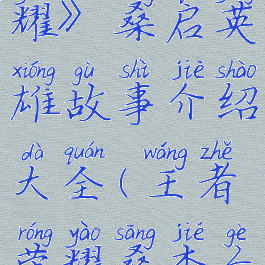 耀》 桑启英
xióng gù shì jiè shào
雄故事介绍
dà quán wáng zhě
大全(王者
róng yào sāng jié gè
荣耀桑杰